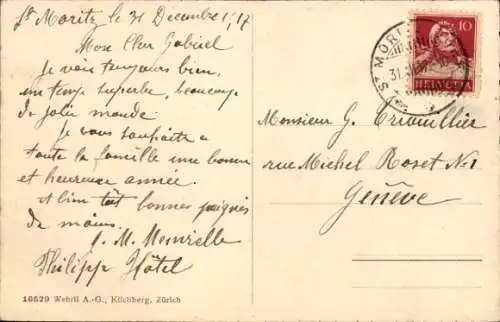 St Moritz le 31 Decembre 1917
Mon cher Gabriel
Je vais toujours bien,
un temps superbe, beaucoup
de jolie monde.
Je vous souhaite a
toute la famille une bonne
et heureuse année.
et bien tôt bonnes poignés
de mains.
Philipp Hôtel
16529 Wehrli A.-G., Kilchberg, Zürich
ST MORITZ
31.
10
HELVETIA
Monsieur G.
rue Michel Roset No 1
Genève